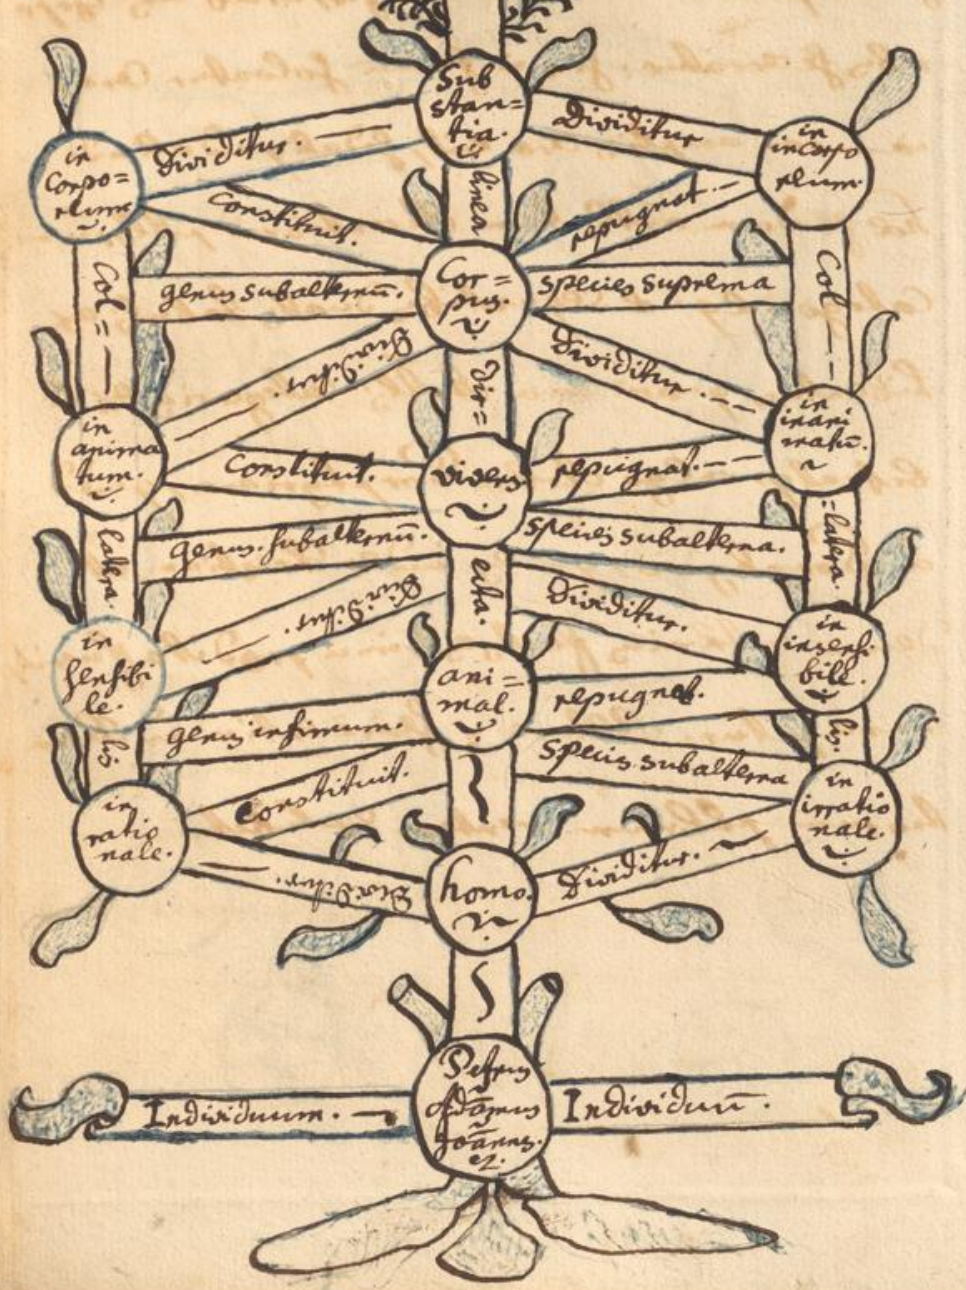 Sub
stan=
tia.
Dividitur.
Dividitur
in
corpo=
in
incorpo
linea
Constituit.
repugnat
Cor=
pus.
Col=
Col
genus subalternū.
species suprema
Dividitur.
Dividitur
dir=
in
anima
tum.
in
inani
matū.
Constituit.
repugnat.
vivens
latera
=latera
genus subalternū.
species subalterna.
Dividitur.
Dividitur.
ecta.
in
sensibi
le.
in
insensi
bile.
ani=
mal.
repugnat.
lis
lis
genus infimum.
species subalterna
Constituit.
in
ratio
nale.
in
irratio
nale.
Dividitur.
homo.
Dividitur.
Petrus
Joānnes.
Individuum.
Individuū.